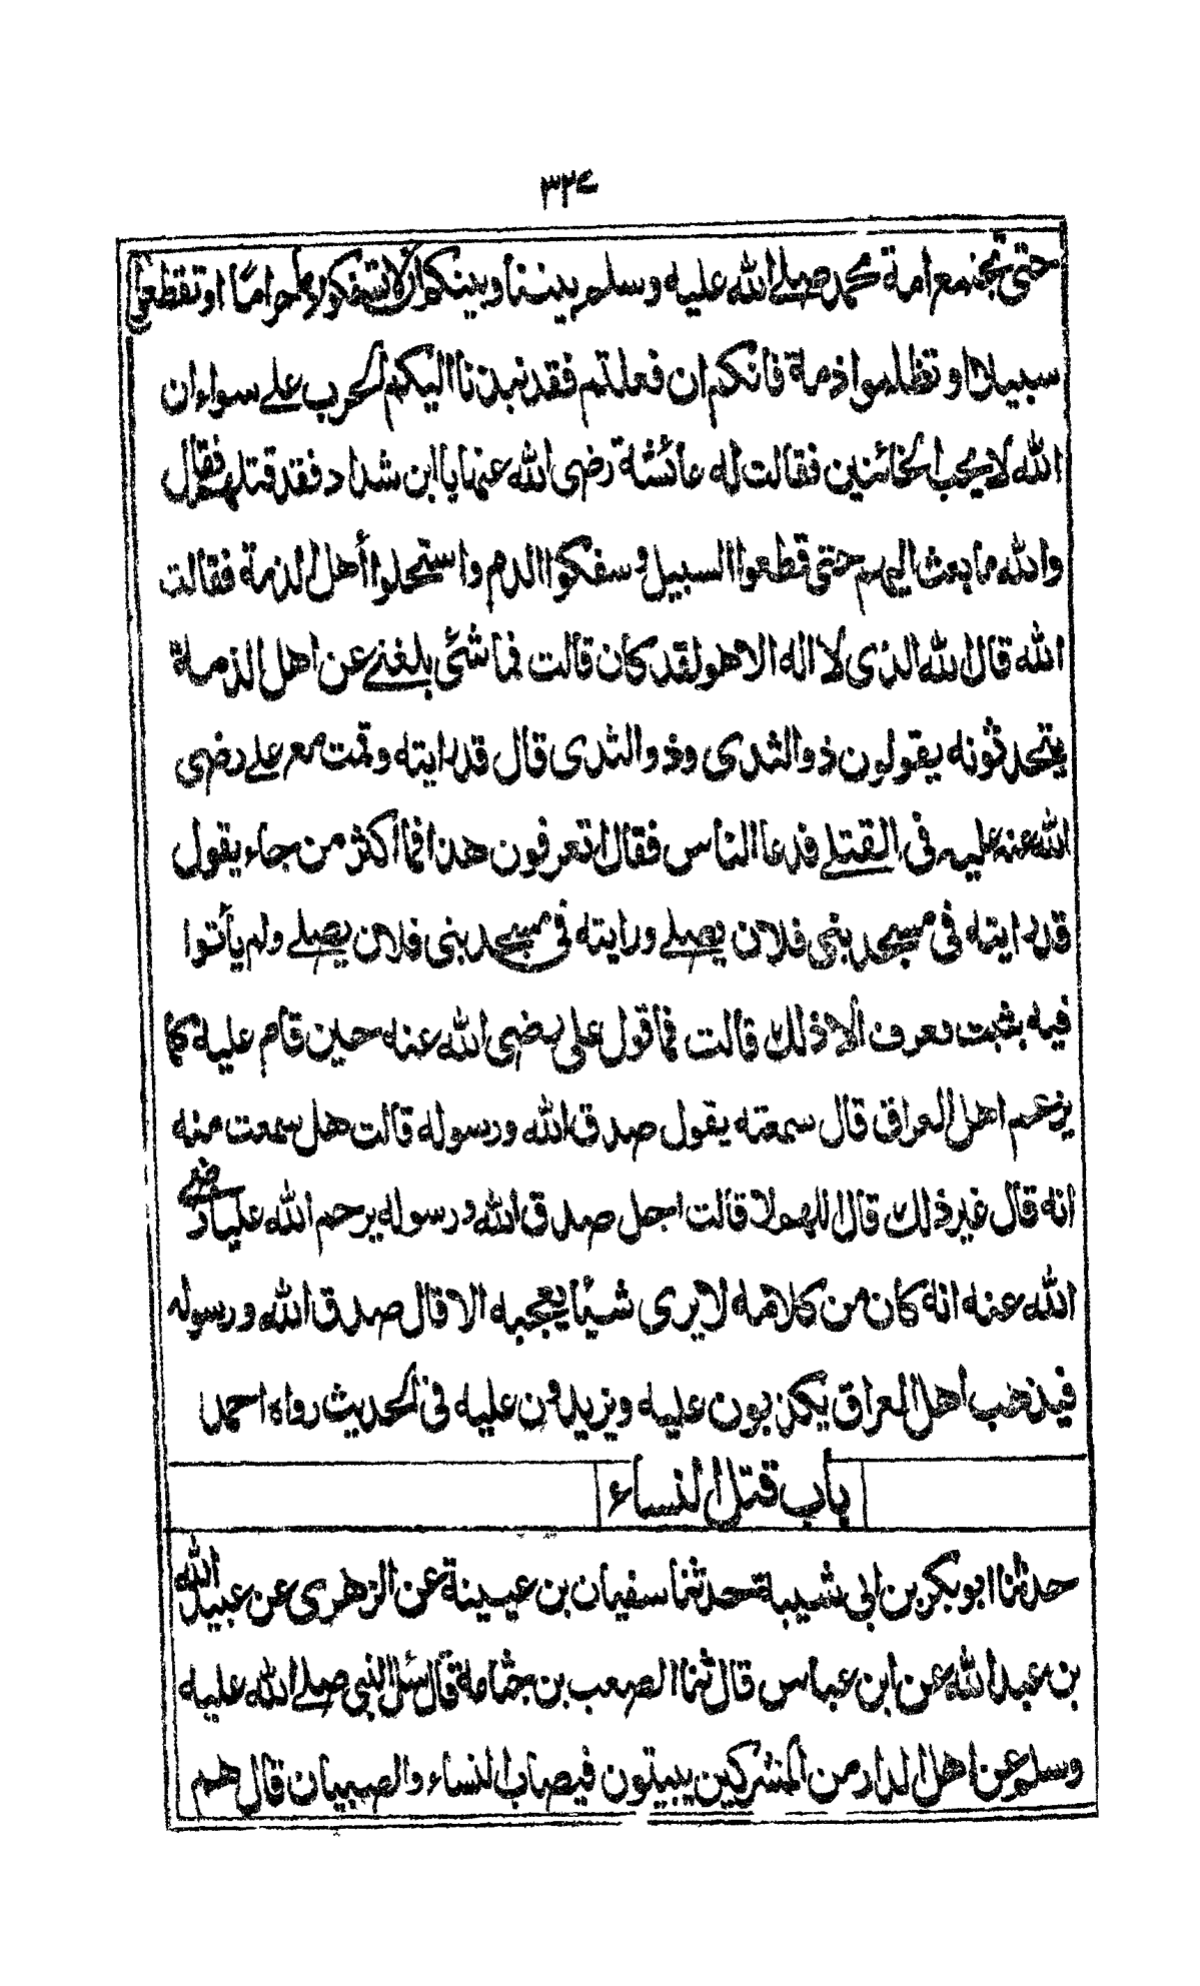 ٣٢٤
حتى تجتمع امة محمد صلے الله عليه وسلم بيننا وبينكم ان لا تسفكوا دما حراما او تقطعوا
سبيلا او تظلموا ذمة فانكم ان فعلتم فقد نبذنا اليكم الحرب علے سواء ان
الله لا يحب الخائنين فقالت له عائشة رضى الله عنها يا ابن شداد فقد قتلهم فقال
والله ما بعث اليهم حتى قطعوا السبيل و سفكوا الدم واستحلوا أهل الذمة فقالت
الله قال الله الذى لا اله الا هو لقد كان قالت فما شئ بلغنے عن اهل الذمة
يتحدثونه يقولون ذو الثدى وذو الثدى قال قد رايته وقمت مع علے رضى
الله عنه عليه فى القتلے فدعا الناس فقال اتعرفون هذا فما اكثر من جاء يقول
قد رايته فى مسجد بنى فلان يصلے ورايته فى مسجد بنى فلان يصلے ولم يأتوا
فيه بثبت يعرف الا ذلك قالت فما قول على رضى الله عنه حين قام عليه كما
يزعم اهل العراق قال سمعته يقول صدق الله ورسوله قالت هل سمعت منه
انه قال غير ذلك قال اللهم لا قالت اجل صدق الله ورسوله يرحم الله عليا رضے
الله عنه انه كان من كلامه لا يرى شيئا يعجبه الا قال صدق الله ورسوله
فيذهب اهل العراق يكذبون عليه ويزيدون عليه فى الحديث رواه احمد
باب قتل النساء
حدثنا ابو بكر بن ابى شيبة حدثنا سفيان بن عيينة عن الزهرى عن عبيد الله
بن عبد الله عن ابن عباس قال ثنا الصعب بن جثامة قال سئل النبى صلے الله عليه
وسلم عن اهل الدار من المشركين يبيتون فيصاب النساء والصبيان قال هم